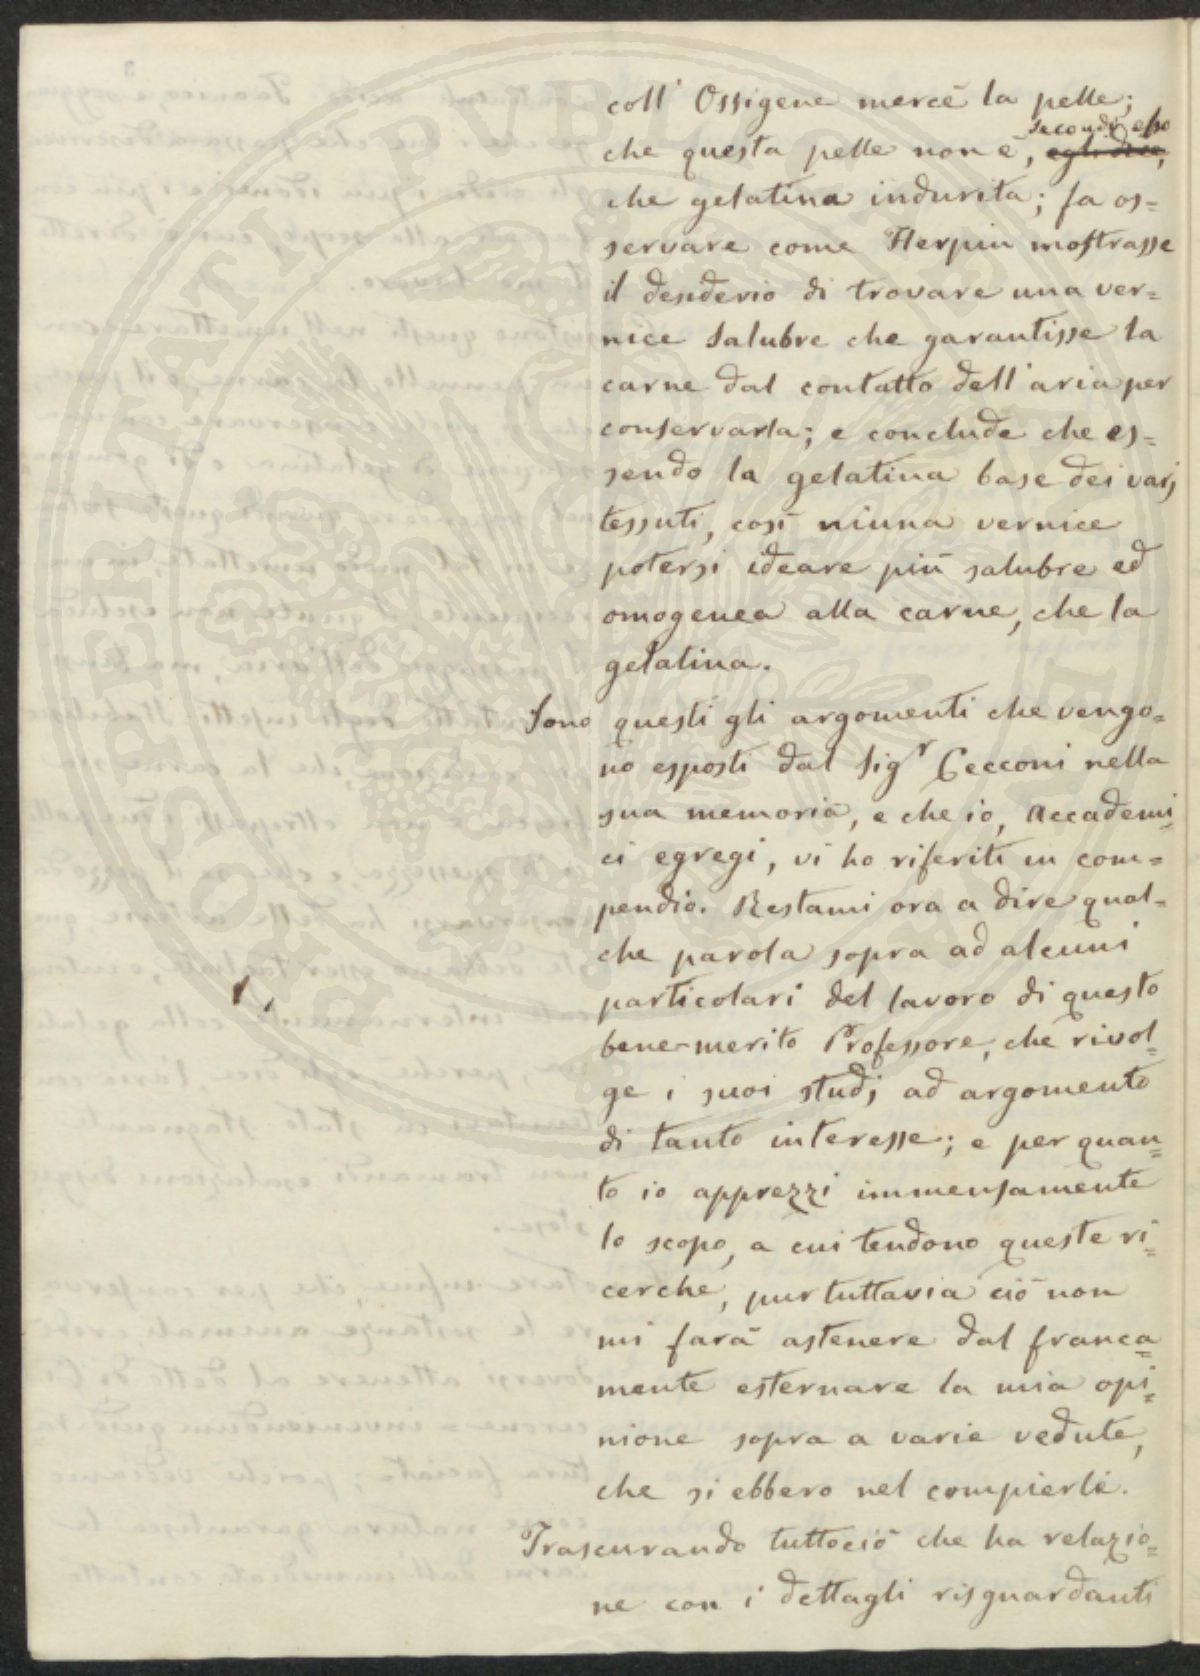 coll' Ossigene mercè la pelle;
che questa pelle non è, secondo esso egli dice,
che gelatina indurita; fa os=
servare come Herpin mostrasse
il desiderio di trovare una ver=
nice salubre che garantisse la
carne dal contatto dell'aria per
conservarla; e conclude che es=
sendo la gelatina base dei varj
tessuti, così niuna vernice
potersi ideare più salubre ed
omogenea alla carne, che la
gelatina.
Sono questi gli argomenti che vengo=
no esposti dal Sig.r Cecconi nella
sua memoria, e che io, Accademi
ci egregi, vi ho riferiti in com=
pendio. Restami ora a dire qual=
che parola sopra ad alcuni
particolari del lavoro di questo
bene-merito Professore, che rivol=
ge i suoi studj ad argomento
di tanto interesse; e per quan=
to io apprezzi immensamente
lo scopo, a cui tendono queste ri=
cerche, pur tuttavia ciò non
mi farà astenere dal franca=
mente esternare la mia opi=
nione sopra a varie vedute,
che si ebbero nel compierle.
Trascurando tuttociò che ha relazio=
ne con i dettagli risguardanti
PROSPERITATI PVBLICAE